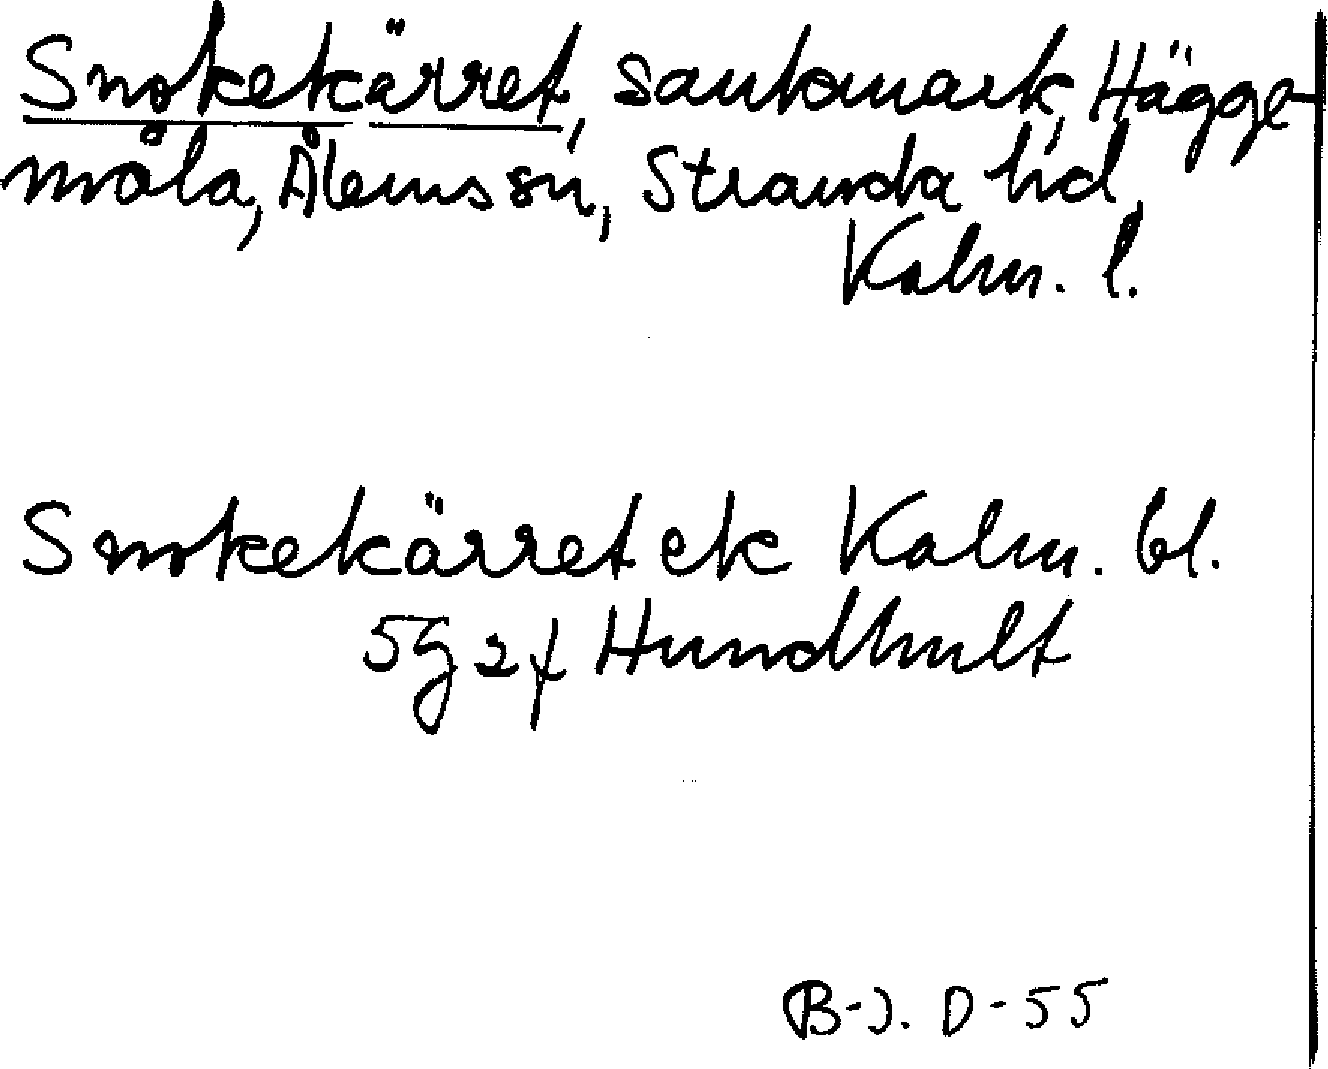 Snokekärret, sankmark, Hägge-
måla, Ålems sn, Stranda hd,
Kalm. l.
Snokekärret ek Kalm. bl.
5g 2f Hundhult
B-J. D-55